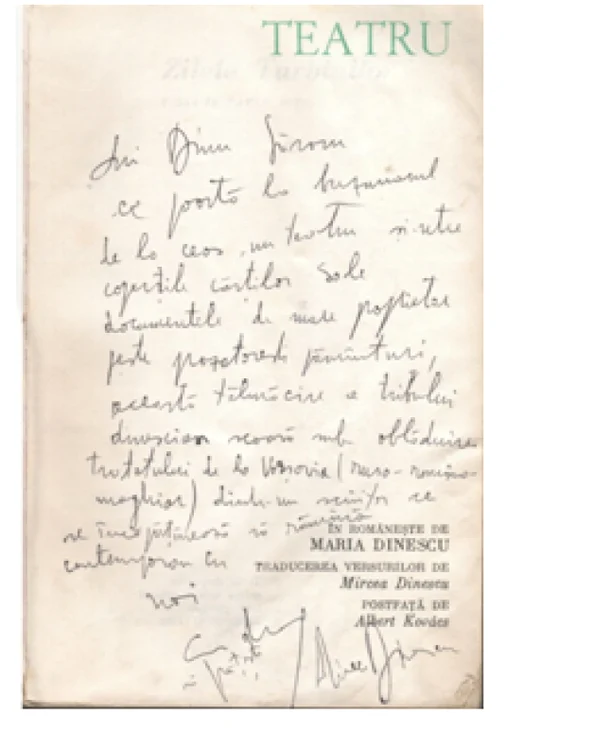 TEATRU
Lui Dinu Săraru
ce poartă la buzunarul
de la ceas un teatru și-ntre
coperțile cărților sale
documentele de mare proprietar
peste prozatorești pământuri,
această tălmăcire a tribului
dinescian scoasă sub oblăduirea
tratatului de la Varșovia (ruso-româno-
maghiar) dintr-un scriitor ce
se încăpățânează să rămână
contemporan cu
noi
ÎN ROMÂNEȘTE DE
MARIA DINESCU
TRADUCEREA VERSURILOR DE
Mircea Dinescu
POSTFAȚĂ DE
Albert Kovács
Cu
și
Mircea Dinescu